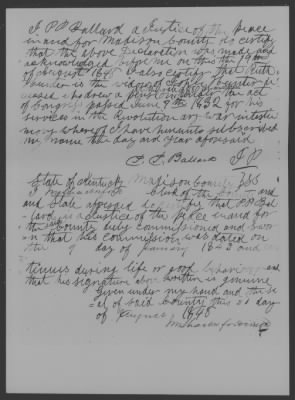 I P P Ballard a Justice of the Peace
in and for Madison County do certify
that the above Declaration was made and
acknowledged before me on this the 19th
of August 1848 I also certify that Ruth
is the widow of
ceased who drew a pension under the act
of Congress passed June 7th 1832 for his
services in the Revolutionary war in testi
mony whereof I have hereunto subscribed
my name the day and year aforesaid
P. P. Ballard JP
State of Kentucky Madison County SSS
clerk of the and
and State aforesaid do certify that P P Bal
lard is a Justice of the peace in and for
said County duly commissioned and swor
n that his commission was dated on
the 9 day of January 1843 and con
tinues during life or good behaviour and
that his signature above written is genuine
Given under my hand and the se
al of said County this 21 day
of August 1848